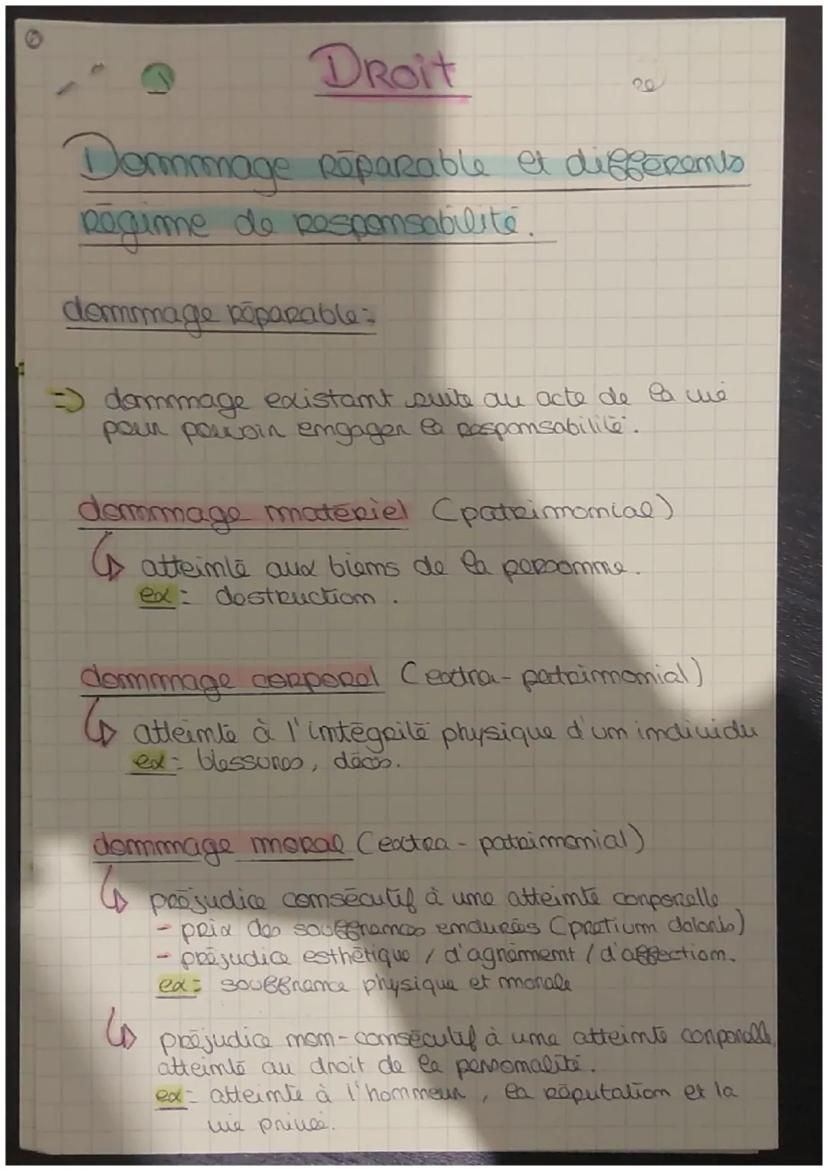 Droit
Dommage réparable et différents
régime de responsabilité.
dommage réparable :
=> dommage existant suite au acte de la vie
pour pouvoir engager la responsabilité.
dommage matériel (patrimonial)
↳ atteinte aux biens de la personne.
ex : destruction.
dommage corporel (extra-patrimonial)
↳ atteinte à l'intégrité physique d'un individu
ex : blessures, décès.
dommage moral (extra-patrimonial)
↳ préjudice consécutif à une atteinte corporelle
- prix des souffrances endurées (pretium doloris)
- préjudice esthétique / d'agrément / d'affection.
ex : souffrance physique et morale
↳ préjudice non-consécutif à une atteinte corporelle
atteinte au droit de la personnalité.
ex : atteinte à l'honneur, la réputation et la
vie privée.